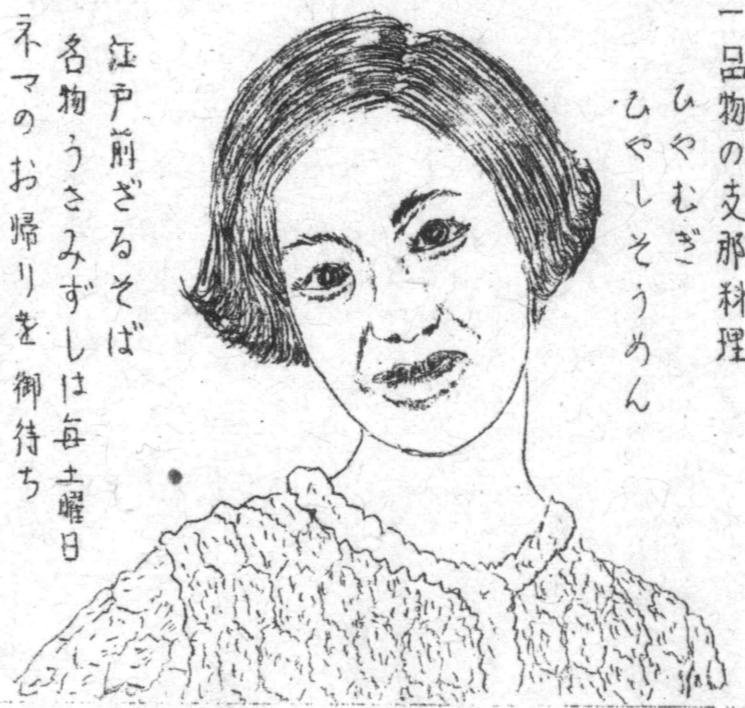 一品物の支那料理
ひやむぎ
ひやしそうめん
江戸前ざるそば
名物うさみずしは毎土曜日
ネマのお帰りを御待ち